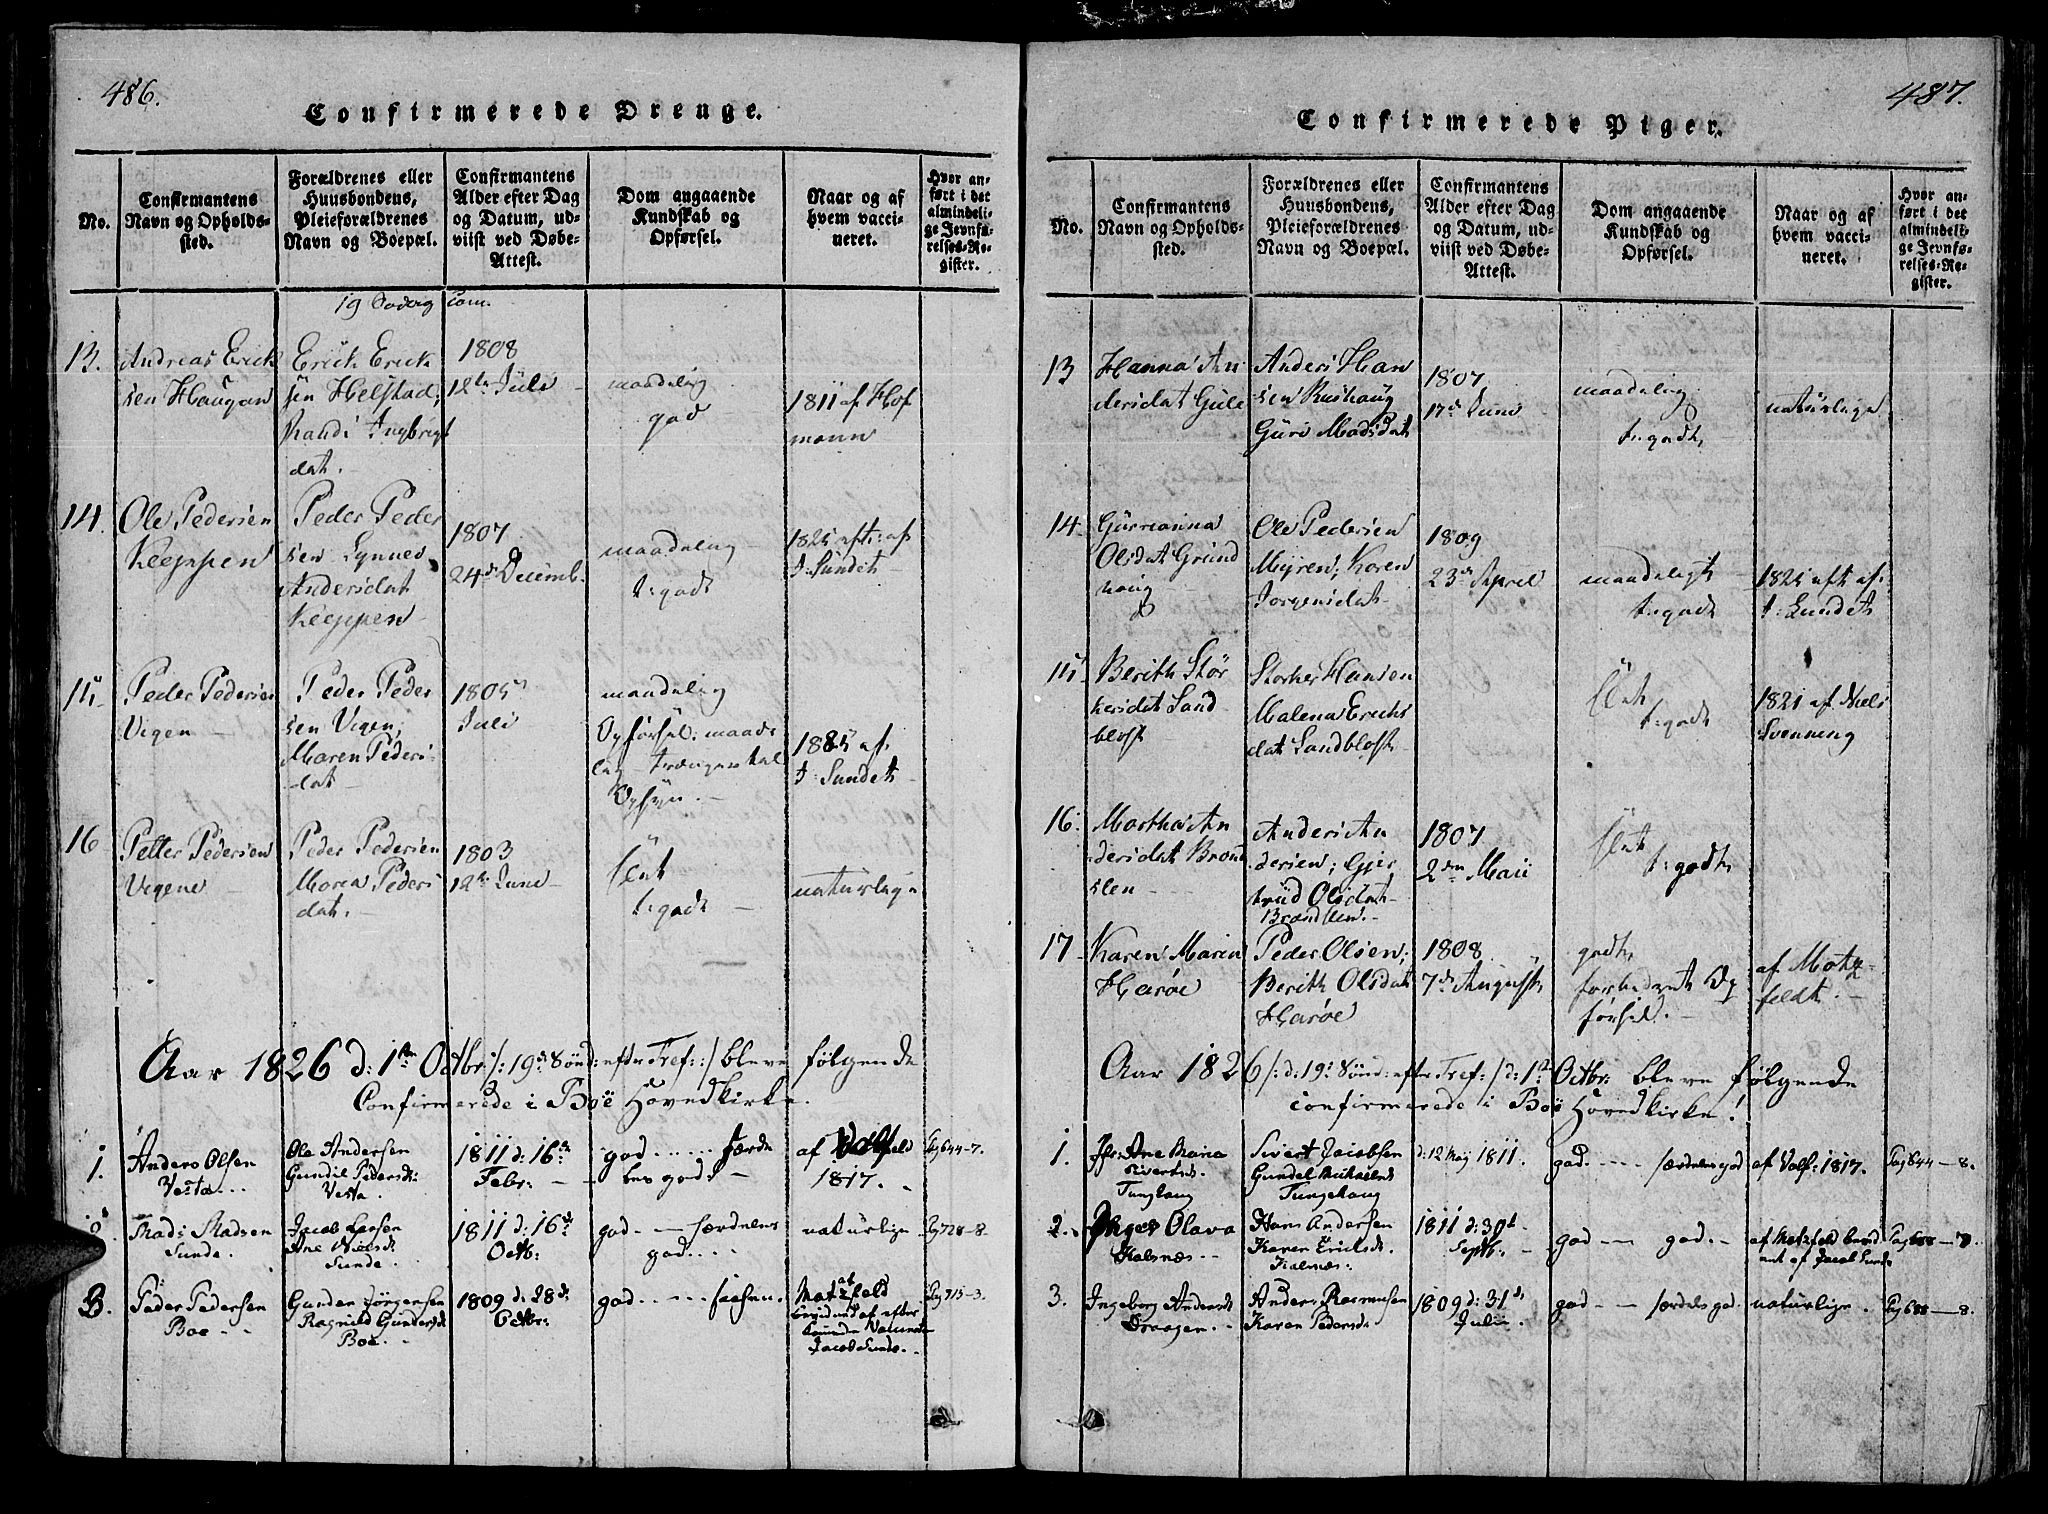 486.
Confirmerede Drenge.
No.
Confirmantens
Navn og Opholds-
sted.
Forældrenes eller
Huusbondens,
Pleieforældrenes
Navn og Boepæl.
Confirmantens
Alder efter Dag
og Datum, ud-
viist ved Døbe-
Attest.
Dom angaaende
Kundskab og
Opførsel.
Naar og af
hvem vacci-
neret.
Hvor an-
ført i det
almindeli-
ge Jevnfø-
relses-Re-
gister.
13.
Andreas Erick
sen Haugan
Erick Erick
sen Helstad;
Randi Ingbrigt
dat.
1808
12te Juli
maadelig
god
1811 af Hof
mann
14.
Ole Pedersen
Keeppen
Peder Peder
sen Lynnes
Andersdat
Keeppen
1807
24de Decemb.
maadelig
t: godt
1825 eft: af
J: Sundet
15
Peder Pedersen
Vigen
Peder Peder
sen Vigen;
Maren Peders
dat
1805
Juli
maadelig
Opførsel: maade
lig
Opsyn.
1825 af
J: Sundet
16
Petter Pedersen
Vigene
Peder Pedersen
Maren Peders
dat.
1803
12te Juni
slet
t: godt
naturlige
Aar 1826 d: 1ste Octbr /: 19de Sønd: efter Tref: :/ bleve følgende
Confirmerede i Boe Hovedkirke.
1.
Anders Olsen
Vestad
Ole Andersen
Gundil Pedersd:
Vesta
1811 d: 16de
Febr:
god særde
les god
af
1817.
Pag 644-7.
Mads Madsen
Sunde.
Jacob Larsen
Ane
Sunde.
1811 d: 16de
Octb:
god særdeles
god
naturlige
Pag 728-8.
3.
Peder Pedersen
Boe
Gunder Jørgensen
Ragnild Gundersd
Boe.
1809 d. 28de
Octbr:
god
af
Matzfeld
af efter
Jacob Sunde.
Pag 715-3.
487.
Confirmerede Piger.
No.
Confirmantens
Navn og Opholds-
sted.
Forældrenes eller
Huusbondens,
Pleieforældrenes
Navn og Boepæl.
Confirmantens
Alder efter Dag
og Datum, ud-
viist ved Døbe-
Attest.
Dom angaaende
Kundskab og
Opførsel.
Naar og af
hvem vacci-
neret.
Hvor an-
ført i det
almindeli-
ge Jevnfø-
relses-Re-
gister.
13
Hanna An
dersdat Gule
Anders Han
sen Rushaug
Guri Madsdat
1807
17de Juni
maadelig
t: godt
naturlige
14.
Gurrianna
Olsdat Grund
haug
Ole Pedersen
Myren; Karen
Jørgensdat
1809
23de April
maadeligt
t: godt
1825 eft af
J: Sundet
15
Berith Stor
kersdat Sand
blost
Storker Hansen
Malena Erichs
dat Sandblost
slet
t: godt
1821 af Niels
Svenning
16.
Martha An
dersdat Brand
slen
Anders An
dersen; Gjer
trud Olsdat
Brandslen.
1807
2den Maii
slet
t: godt
17
Karen Marin
Harøe
Peder Olsen;
Berith Olsdat
Harøe
1808
7de August
godt
forbedret Op
førsel.
af Motz
feldt.
Aar 1826 /: d: 19de Sønd: efter Tref: :/ d: 1ste Octbr: bleve følgende
confirmerede i Boe Hovedkirke!
1.
Ane Maria
Sivertsd.
Sivert Jacobsen
Gundel
d: 12 Maj 1811.
god særdeles god
af Valf: 1817.
Pag 644-8.
2.
Olava
Kalsnæs
Hans Andersen
Karen Ericksd:
Kalsnæs
1811 d: 30te
Septb.
god god.
af Motzfeld
af Jacob Sunde
3.
Ingeborg Andersd
Draagen
Anders Rasmusen
Karen Pedersd:
1809 d: 31de
Julii.
god særdeles god
naturlige.